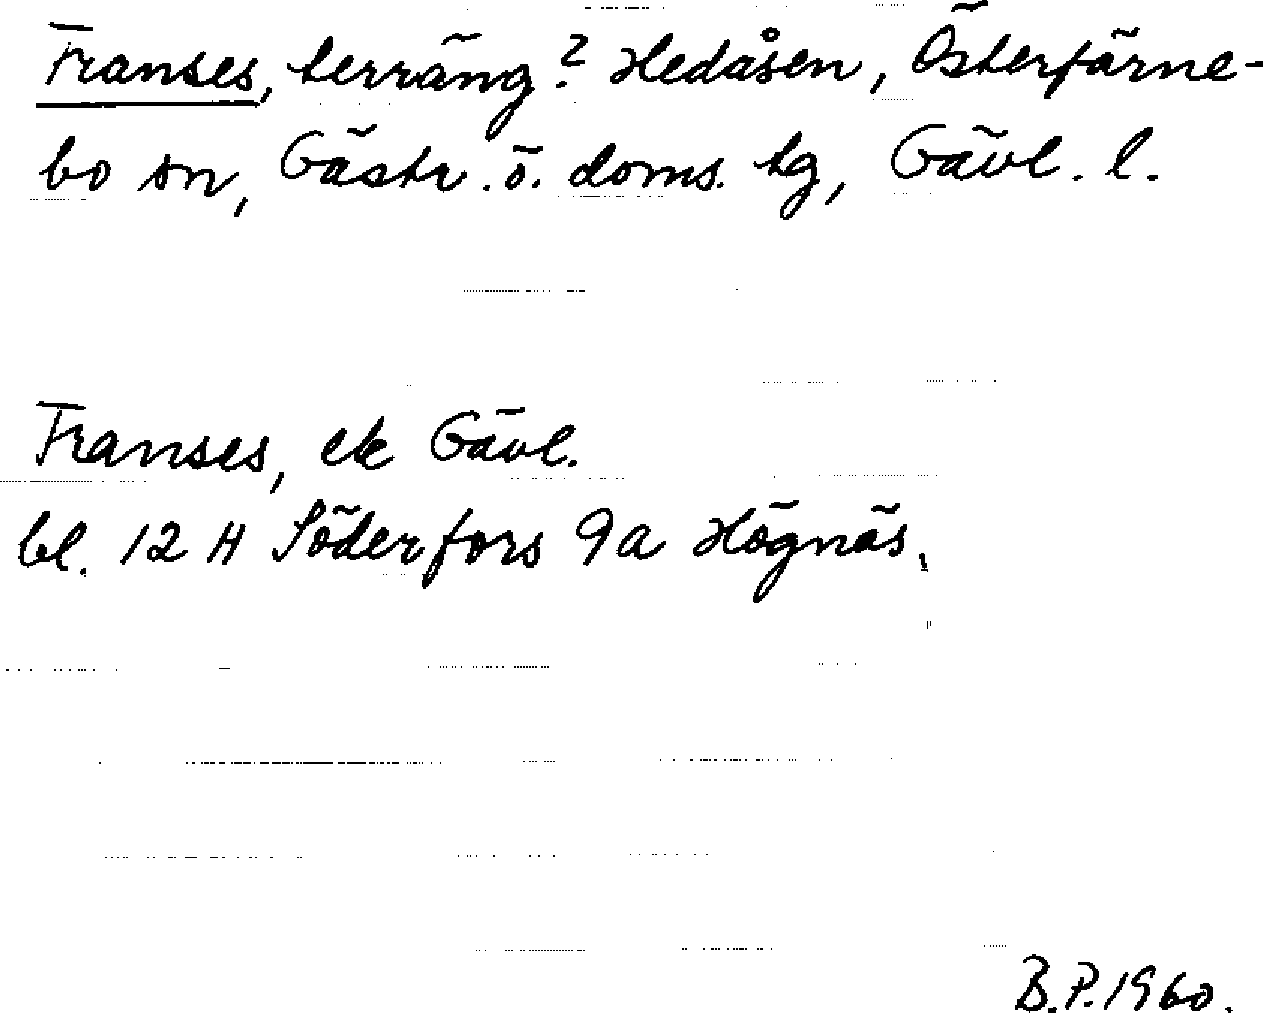 Franses, terräng? Hedåsen, Österfärne-
bo sn, Gästr. ö. doms. tg, Gävl. l.
Franses, ek Gävl.
bl. 12 H Söderfors 9a Högnäs.
B.P. 1960.